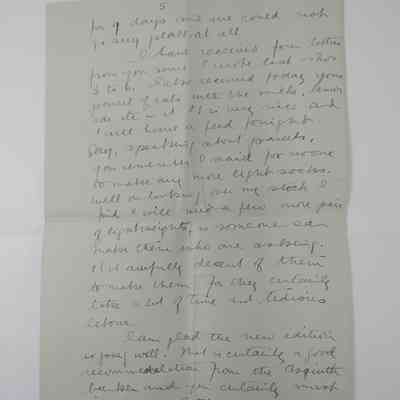 5
for 9 days and we could not
go any place at all
I have received four letters
from you since I wrote last
I also received today your
parcel of eats with the milk,
etc in it. It is very nice and
I will have a feed tonight.
Say, speaking about parcels,
you remember I said for no one
to make any more light socks.
Well on looking over my stock I
find I will need a few more pair
of lightweights, so someone can
make them who are asking.
It is awfully decent of them
to make them for they certainly
take a lot of time and tedious
labour.
I am glad the new edition
is going well. That is certainly a good
recommendation from the Asquith
and you certainly must